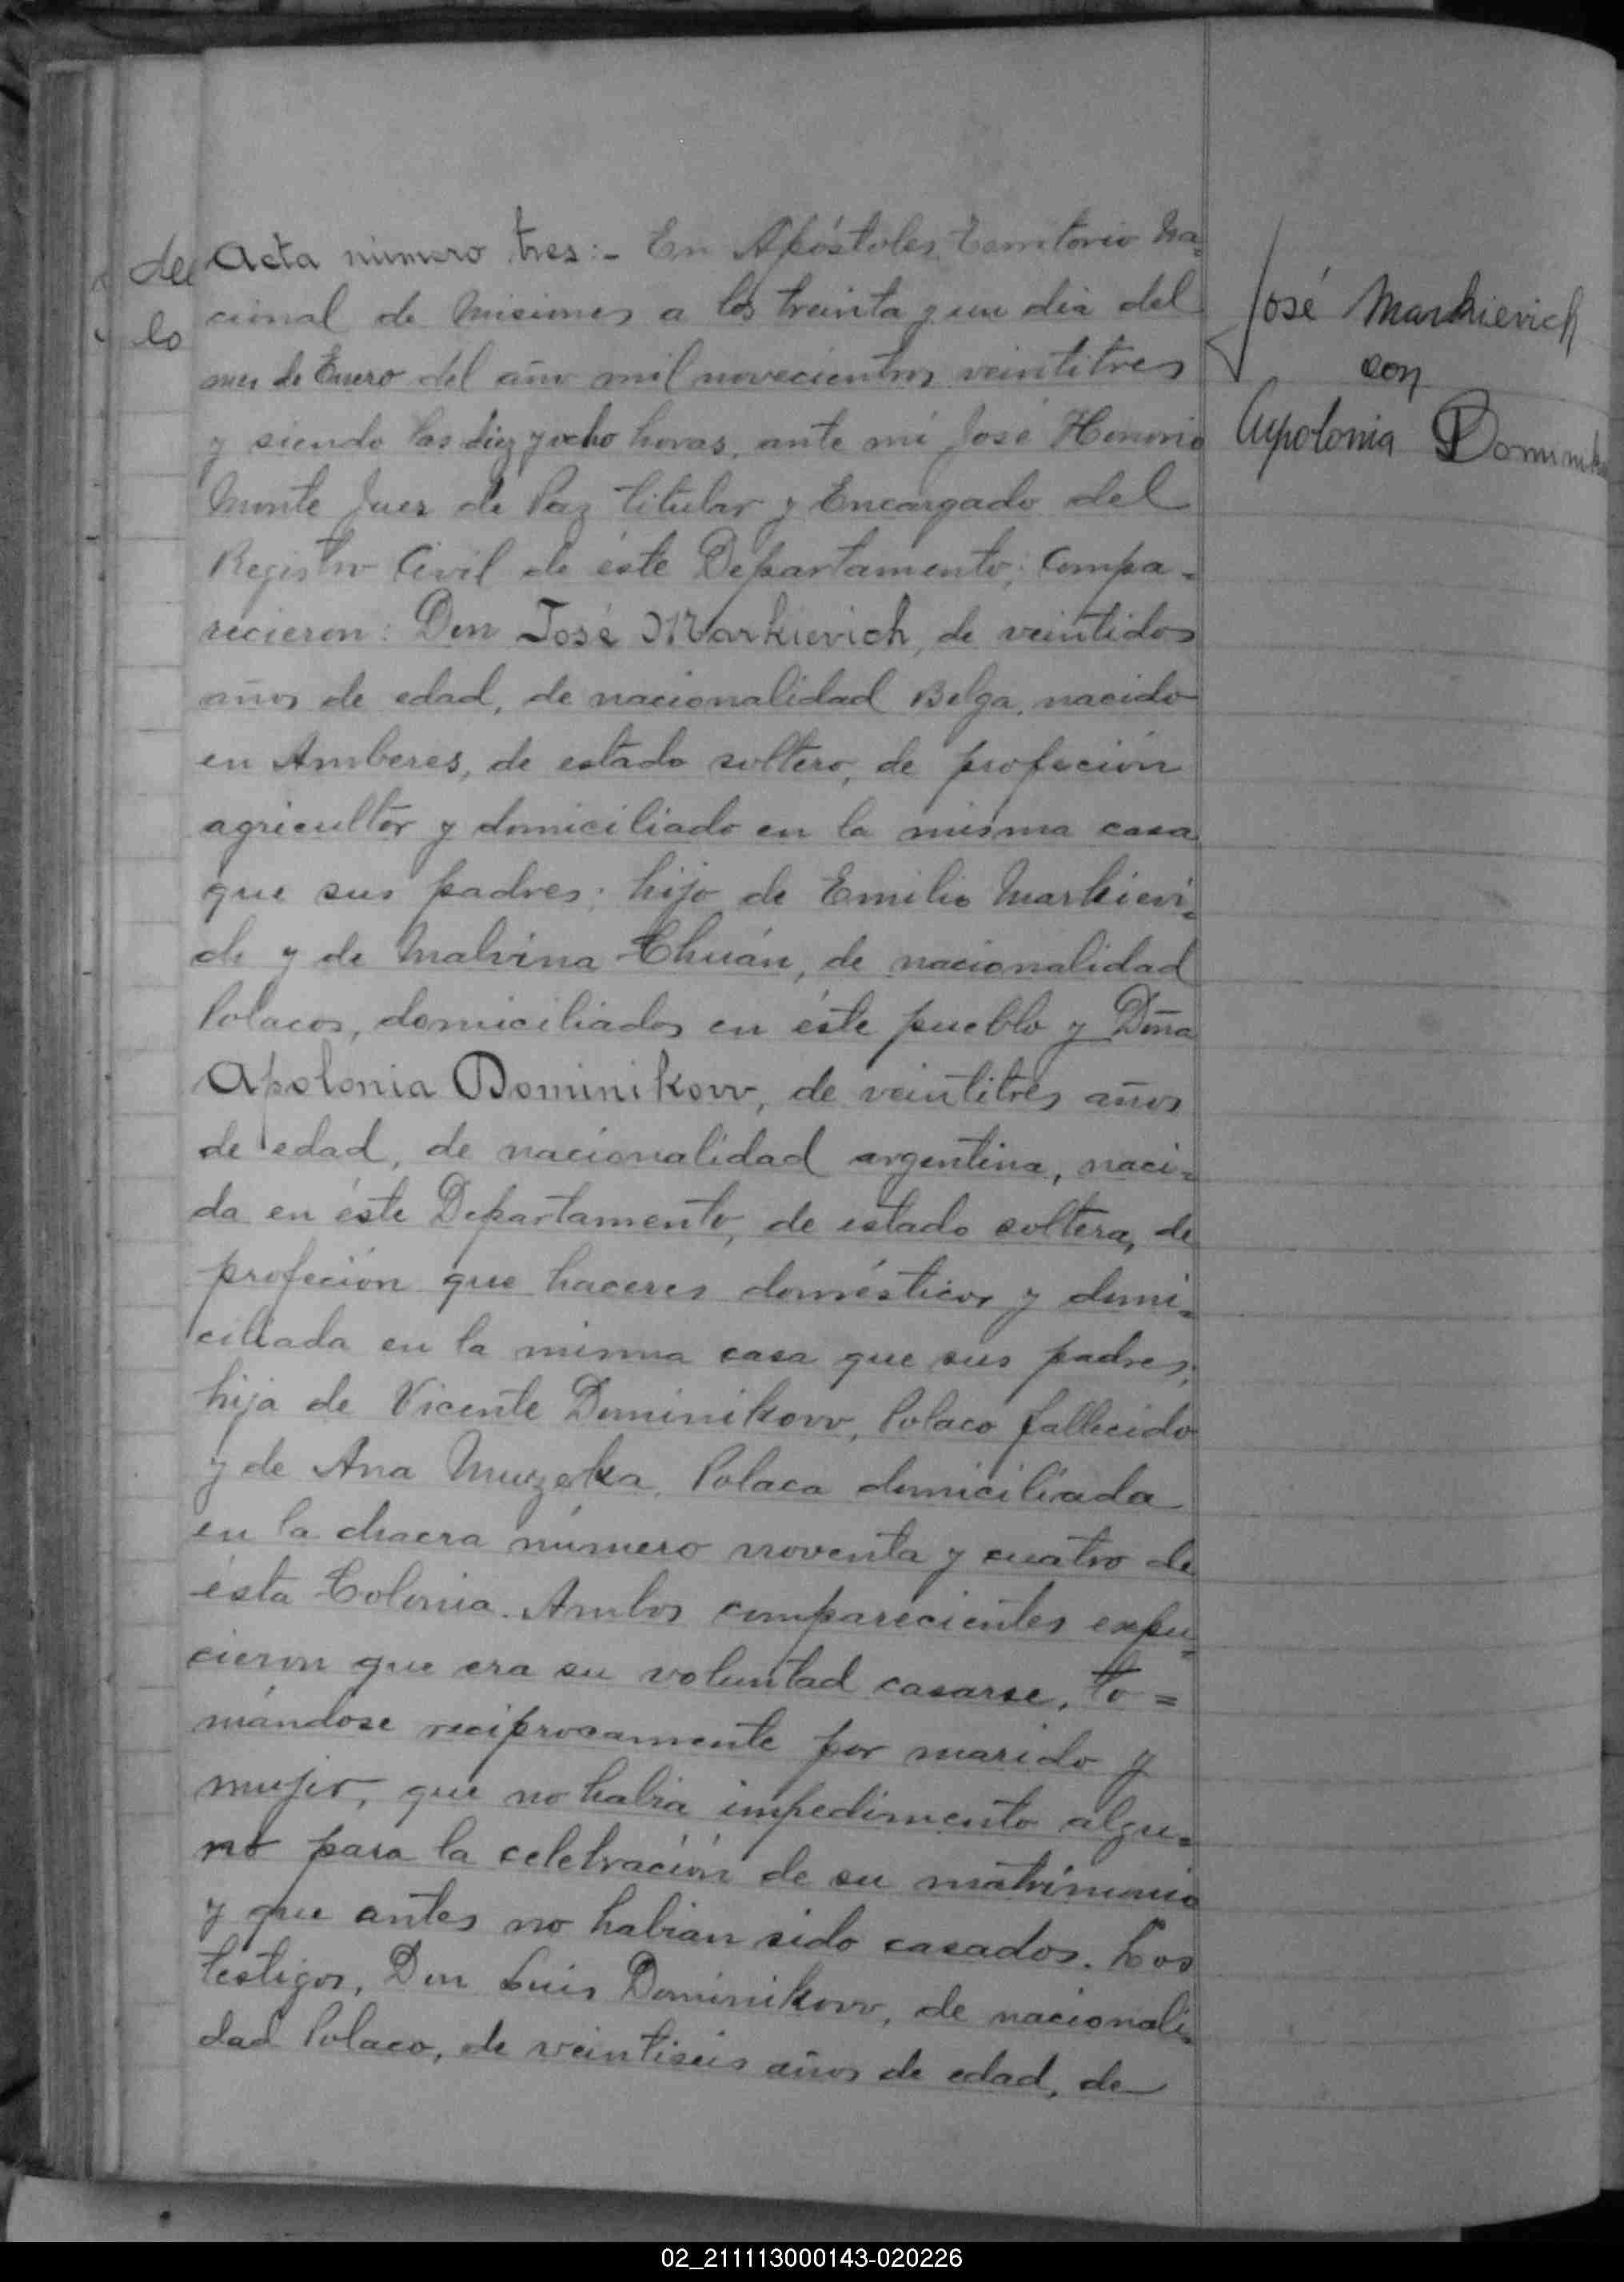 Acta número tres:- En Apóstoles, Territorio Na=
cional de Misiones a los treinta y un dia del
mes de Enero del año mil novecientos veintitres
y siendo las diez y ocho horas, ante mi José Honorio
Monte Juez de Paz titular y Encargado del
Registro Civil de éste Departamento; Compa-
recieron: Don José Markievich, de veintidos
años de edad, de nacionalidad Belga, nacido
en Amberes, de estado soltero, de profeción
agricultor y domiciliado en la misma casa
que sus padres; hijo de Emilio Markievi=
ch y de Malvina Chuán, de nacionalidad
Polacos, domiciliados en éste pueblo y Doña
Apolonia Dominikow, de veintitres años
de edad, de nacionalidad argentina, naci=
da en éste Departamento, de estado soltera, de
profeción que haceres domésticos y domi=
ciliada en la misma casa que sus padres;
hija de Vicente Dominikow, Polaco fallecido
y de Ana Muzeka, Polaca domiciliada
en la chacra número noventa y cuatro de
ésta Colonia. Ambos comparecientes expu=
cieron que era su voluntad casarse, to=
mándose reciprocamente por marido y
mujer, que no habia impedimento algu=
no para la celebración de su matrimonio
y que antes no habian sido casados. Los
testigos, Don Luis Dominikow, de nacionali=
dad Polaco, de veintiseis años de edad, de
José Markievich
con
Apolonia Dominik
de
lo
02_211113000143-020226